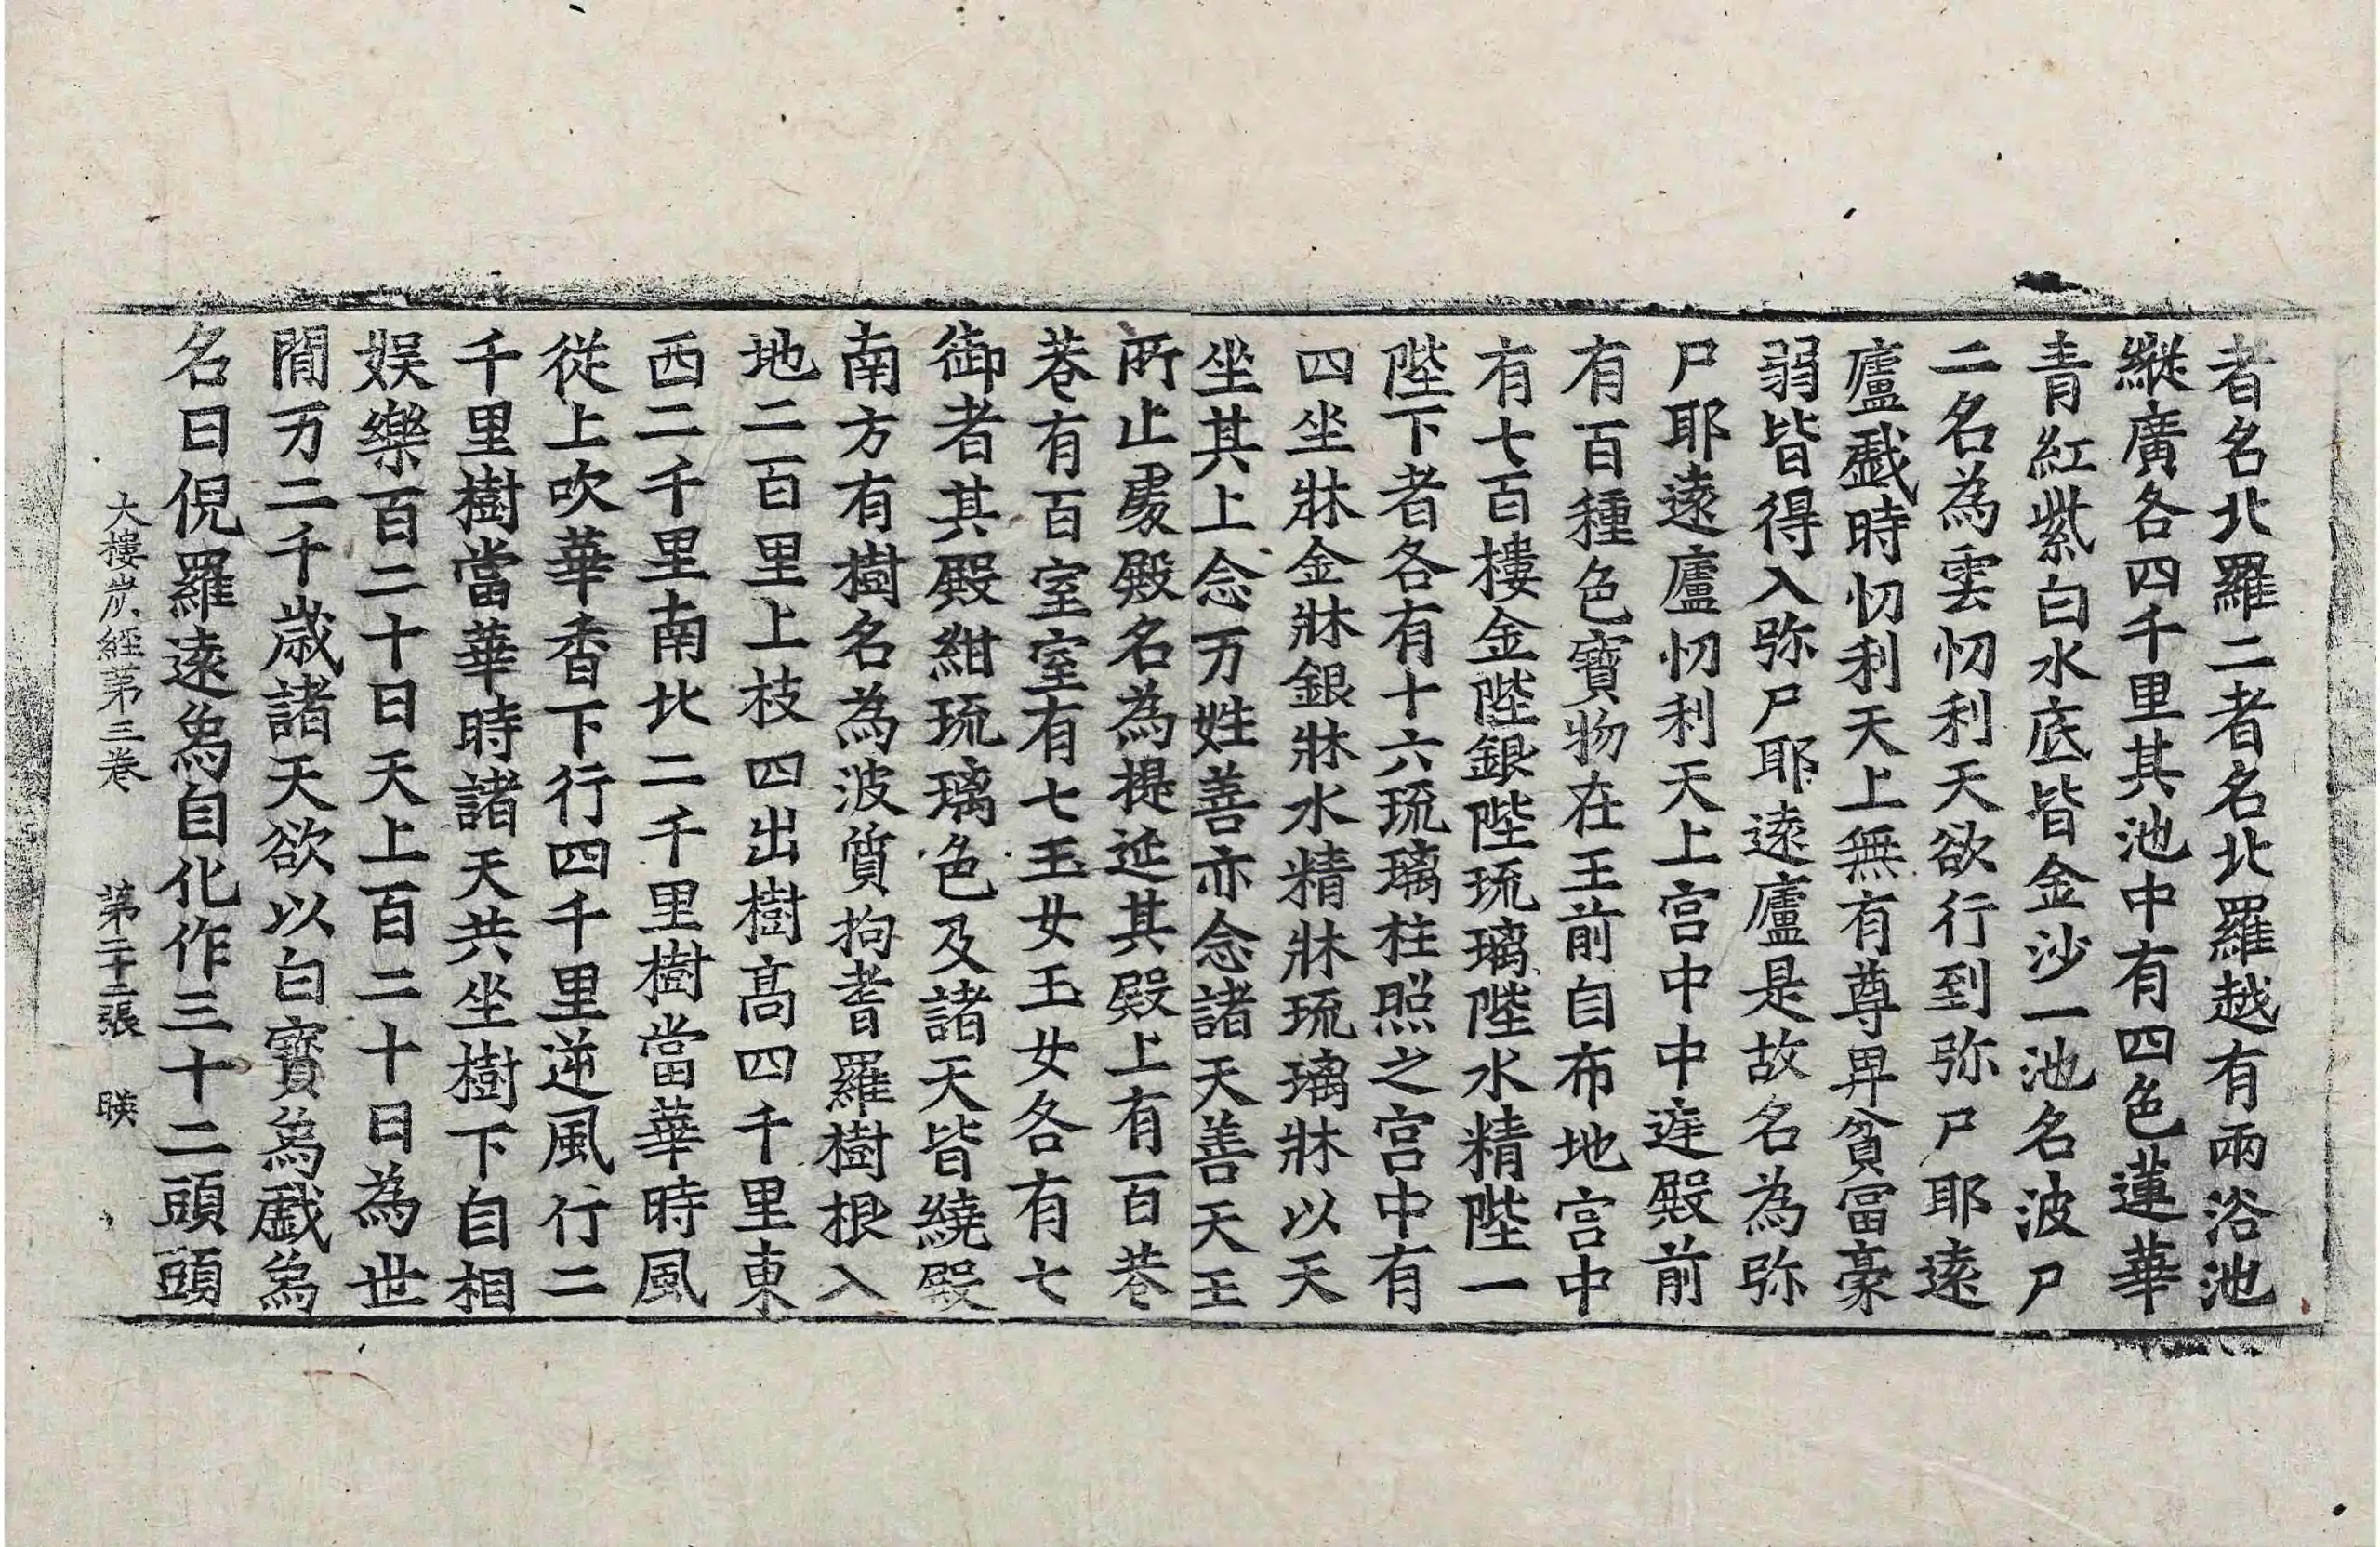 者名北羅二者名北羅越有兩浴池
縱廣各四千里其池中有四色蓮華
青紅紫白水底皆金沙一池名波尸
二名為雲忉利天欲行到弥尸耶遠
廬戱時忉利天上無有尊卑貧冨豪
弱皆得入弥尸耶遠廬是故名為弥
尸耶遠廬忉利天上宮中中庭殿前
有百種色寶物在王前自布地宮中
有七百樓金陛銀陛琉璃陛水精陛一
陛下者各有十六琉璃柱照之宮中有
四坐牀金牀銀牀水精牀琉璃牀以天
坐其上念万姓善亦念諸天善天王
所止處殿名為提延其殿上有百巷
巷有百室室有七玉女玉女各有七
御者其殿紺琉璃色及諸天皆繞殿
南方有樹名為波質拘耆羅樹根入
地二百里上枝四出樹高四千里東
西二千里南北二千里樹當華時風
從上吹華香下行四千里逆風行二
千里樹當華時諸天共坐樹下自相
娛樂百二十日天上百二十日為世
閒万二千歲諸天欲以白寶爲戱爲
名曰倪羅遠爲自化作三十二頭頭
大樓炭經第三卷　第二十二張　暎